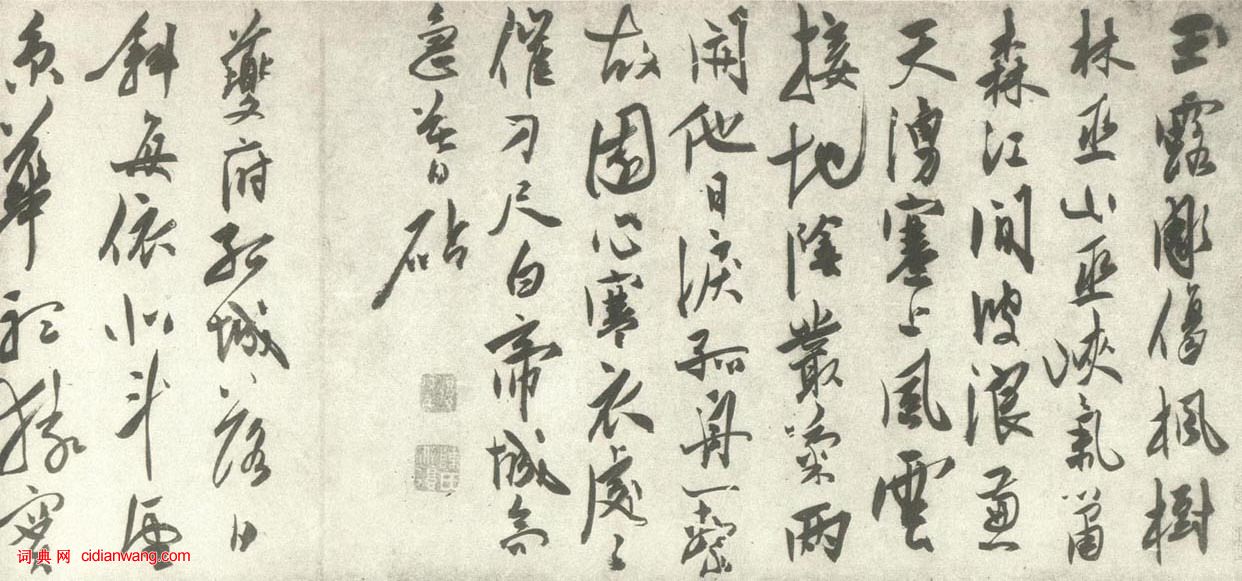 玉露雕傷楓樹
林巫山巫峽氣蕭
森江間波浪兼
天湧塞上風雲
接地陰叢菊兩
開他日淚孤舟一繫
故園心寒衣處〻
催刀尺白帝城高
急暮砧
夔府孤城落日
斜每依北斗望
京華聽猿實
词典网 cidianwang.com